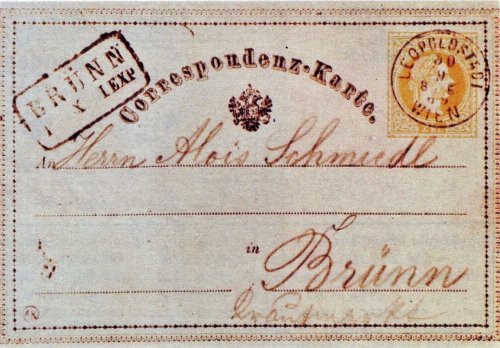 BRÜNN
1 X LEXP
Correspondenz-Karte.
LEOPOLDSTADT
30
9
WIEN
An Herrn Alois Schmiedl
in
Brünn
Krautmarkt